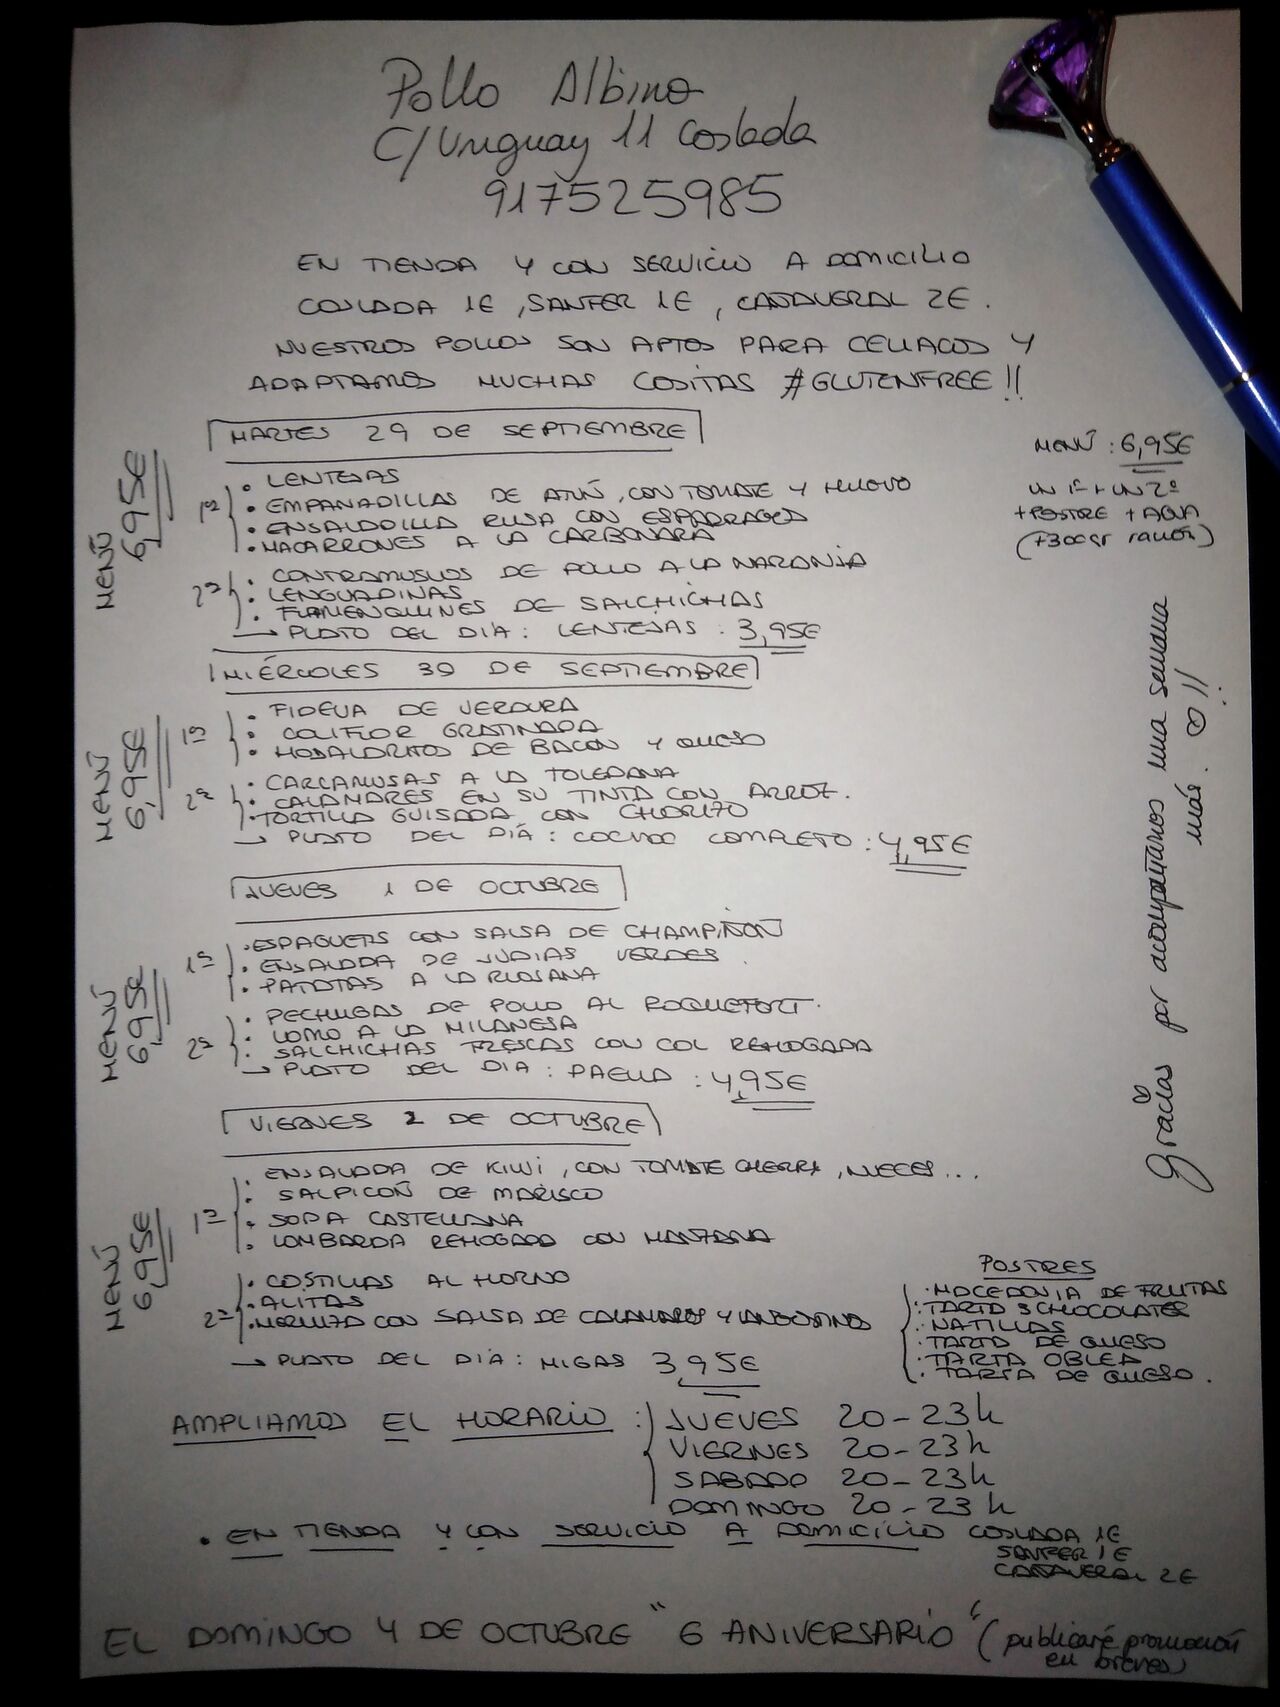 Pollo Albino
C/Uruguay 11 Coslada
917525985
EN TIENDA Y CON SERVICIO A DOMICILIO
COSLADA 1€, SANFER 1€, CAÑAVERAL 2€.
NUESTROS POLLOS SON APTOS PARA CELIACOS Y
ADAPTAMOS MUCHAS COSITAS #GLUTENFREE!!
MARTES 29 DE SEPTIEMBRE
MENÚ 6,95€
1º
• LENTEJAS
• EMPANADILLAS DE ATÚN, CON TOMATE Y HUEVO
• ENSALADILLA RUSA CON ESPÁRRAGOS
• MACARRONES A LA CARBONARA
2º
• CONTRAMUSLOS DE POLLO A LA NARANJA
• LENGUADINAS
• FLAMENQUINES DE SALCHICHAS
→ PLATO DEL DÍA: LENTEJAS: 3,95€
MENÚ: 6,95€
UN 1º + UN 2º
+ POSTRE + AGUA
(+300gr ración)
MIÉRCOLES 30 DE SEPTIEMBRE
MENÚ 6,95€
1º
• FIDEUA DE VERDURA
• COLIFLOR GRATINADA
• HOJALDRITOS DE BACON Y QUESO
2º
• CARCAMUSAS A LA TOLEDANA
• CALAMARES EN SU TINTA CON ARROZ.
• TORTILLA GUISADA CON CHORIZO
→ PLATO DEL DÍA: COCIDO COMPLETO: 4,95€
JUEVES 1 DE OCTUBRE
MENÚ 6,95€
1º
• ESPAGUETIS CON SALSA DE CHAMPIÑÓN
• ENSALADA DE JUDIAS VERDES
• PATATAS A LA RIOJANA
2º
• PECHUGAS DE POLLO AL ROQUEFORT.
• LOMO A LA MILANESA
• SALCHICHAS FRESCAS CON COL REHOGADA
→ PLATO DEL DIA: PAELLA: 4,95€
VIERNES 2 DE OCTUBRE
MENÚ 6,95€
1º
• ENSALADA DE KIWI, CON TOMATE CHERRY, NUECES...
• SALPICÓN DE MARISCO
• SOPA CASTELLANA
• LOMBARDA REHOGADA CON MANZANA
2º
• COSTILLAS AL HORNO
• ALITAS
• MERLUZA CON SALSA DE CALAMARES Y LANGOSTINOS
→ PLATO DEL DÍA: MIGAS 3,95€
Gracias por acompañarnos una semana
más. ♡!!
POSTRES
• MACEDONIA DE FRUTAS
• TARTA 3 CHOCOLATES
• NATILLAS
• TARTA DE QUESO
• TARTA OBLEA
• TARTA DE QUESO.
AMPLIAMOS EL HORARIO: JUEVES 20-23h
VIERNES 20-23h
SABADO 20-23h
DOMINGO 20-23h
• EN TIENDA Y CON SERVICIO A DOMICILIO COSLADA 1€
SANFER 1€
CAÑAVERAL 2€
EL DOMINGO 4 DE OCTUBRE "6 ANIVERSARIO" (publicaré promoción
en breves)